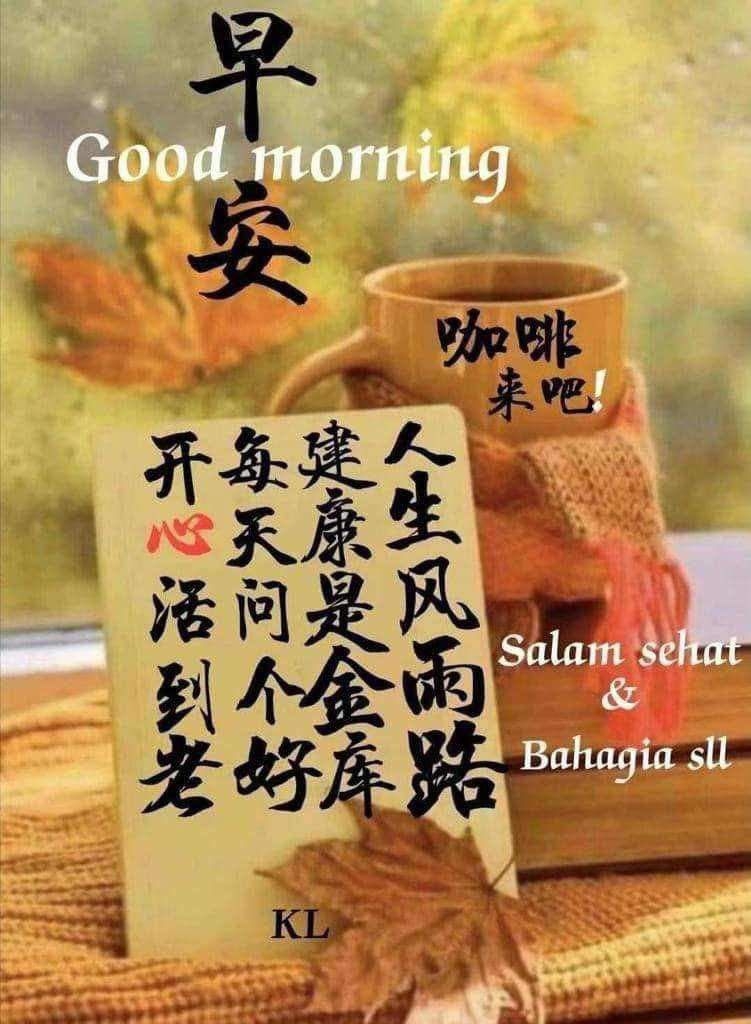 早安
Good morning
咖啡
来吧!
人生风雨路
建康是金库
每天问个好
开心活到老
Salam sehat
&
Bahagia sll
KL